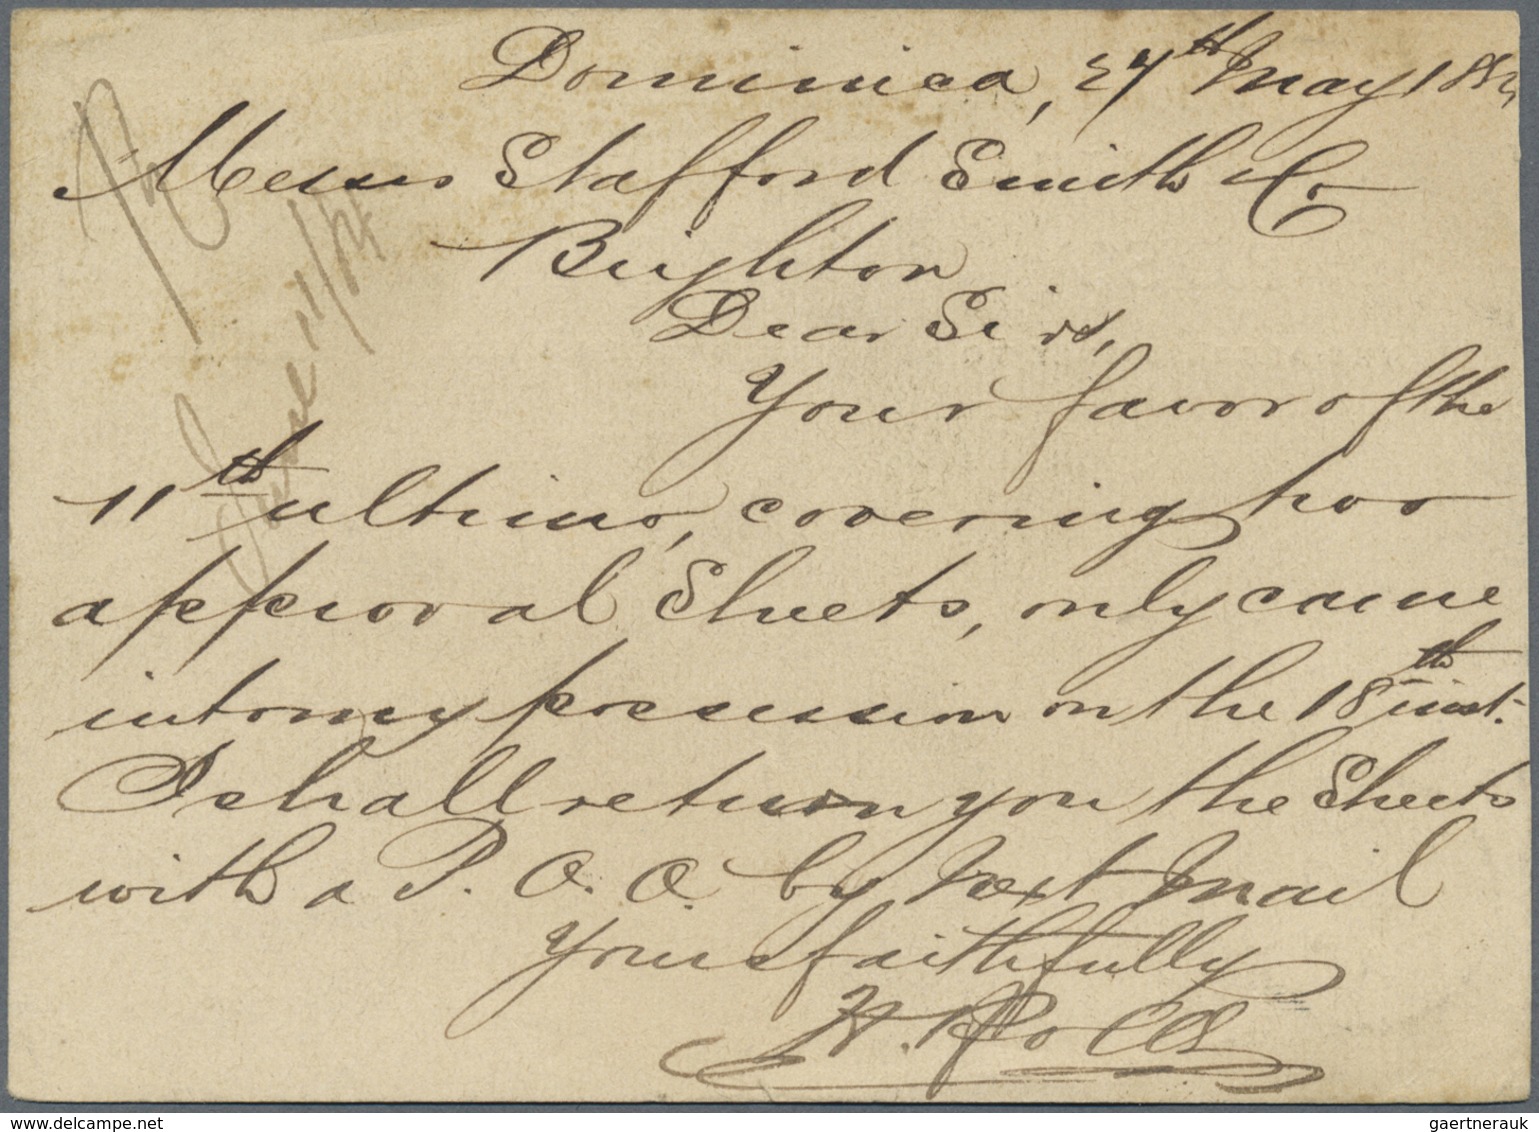 Dominica, 27th May 188
Messrs Stafford Smith & Co
Brighton
Dear Sirs,
Your favor of the
11th ultimo, covering two
approval Sheets, only came
into my possession on the 18th inst.
I shall return you the Sheets
with a P. O. O. by next mail
Yours faithfully
June 11/84
gaertnerauk